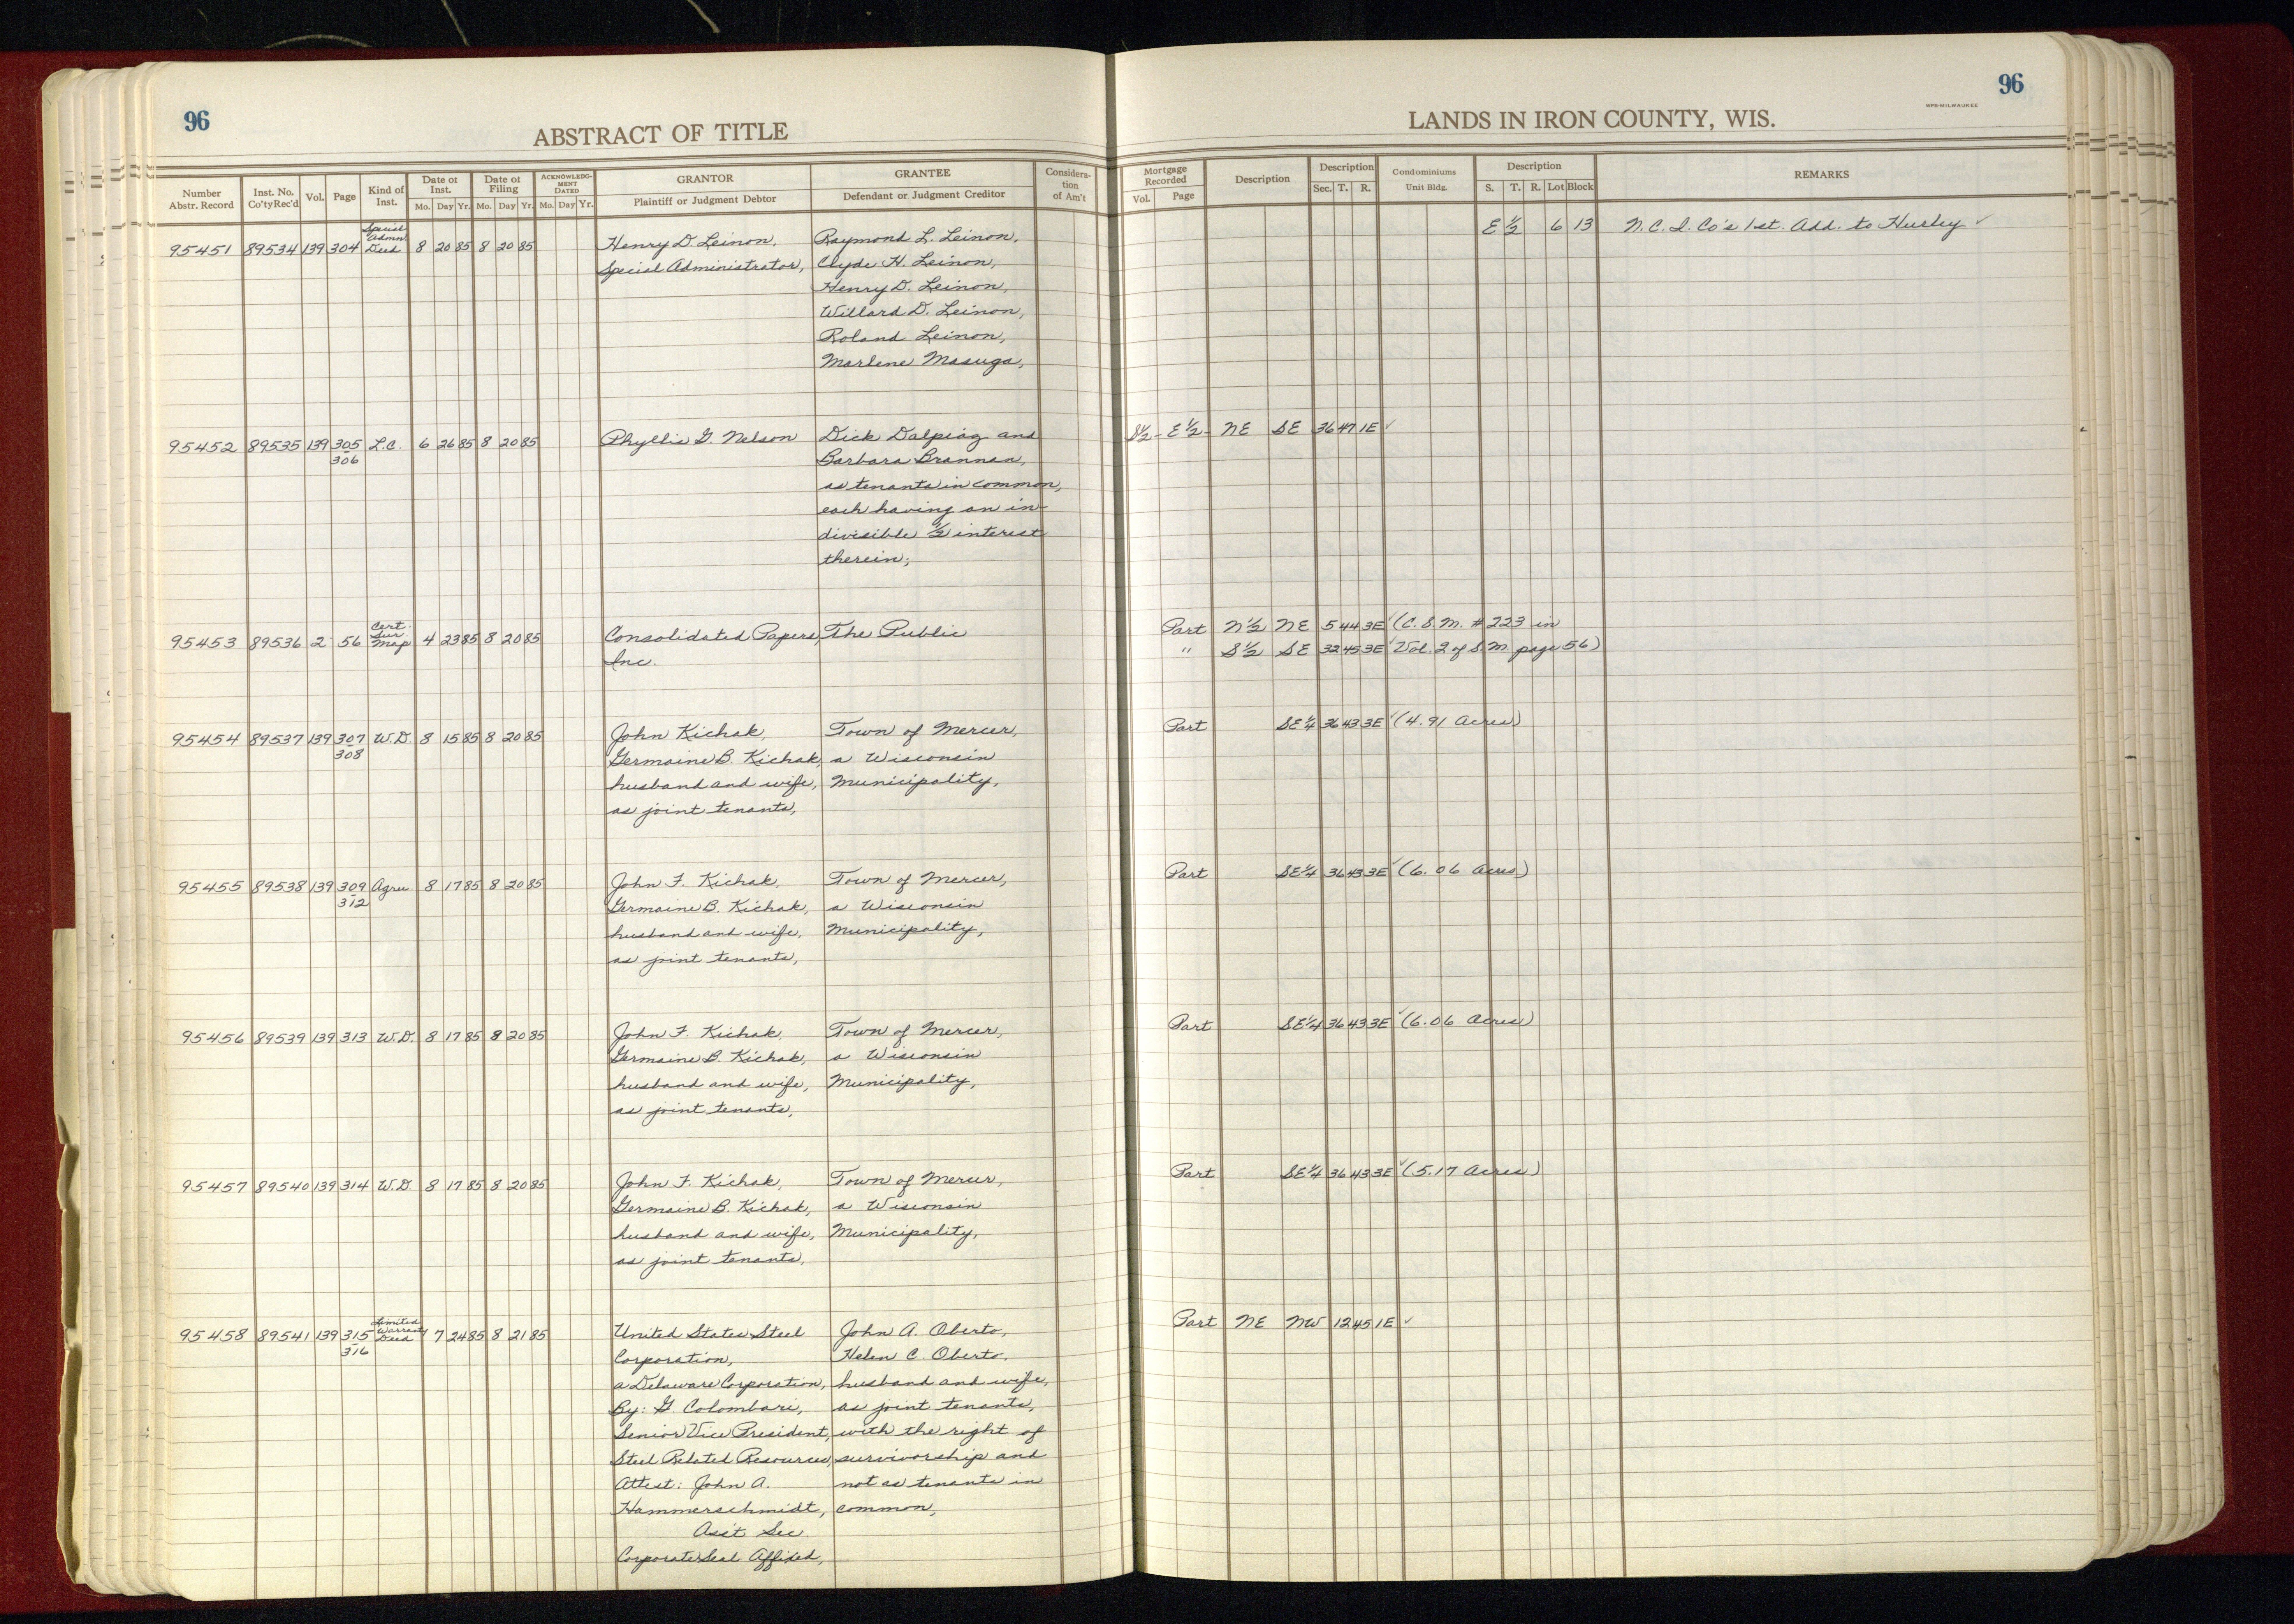 96
ABSTRACT OF TITLE
Number Abstr. Record | Inst. No. Co'ty Rec'd | Vol. | Page | Kind of Inst. | Date of Inst. Mo. Day Yr. | Date of Filing Mo. Day Yr. | ACKNOWLEDG-MENT DATED Mo. Day Yr. | GRANTOR Plaintiff or Judgment Debtor | GRANTEE Defendant or Judgment Creditor | Considera-tion of Am't
95451 89534 139 304 Special Admn Deed 8 20 85 8 20 85 Henry D. Leinon, Raymond L. Leinon,
Special Administrator, Clyde H. Leinon,
Henry D. Leinon,
Willard D. Leinon,
Roland Leinon,
Marlene Masuga,
95452 89535 139 305-306 L.C. 6 26 85 8 20 85 Phyllis G. Nelson Dick Dalpiaz and
Barbara Brannan,
as tenants in common,
each having an in-
divisible 1/2 interest
therein;
95453 89536 2 56 Cert. Sur. Map 4 23 85 8 20 85 Consolidated Papers, The Public
Inc.
95454 89537 139 307-308 W.D. 8 15 85 8 20 85 John Kichak, Town of Mercer,
Germaine B. Kichak, a Wisconsin
husband and wife, Municipality,
as joint tenants,
95455 89538 139 309-312 Agree. 8 17 85 8 20 85 John F. Kichak, Town of Mercer,
Germaine B. Kichak, a Wisconsin
husband and wife, Municipality,
as joint tenants,
95456 89539 139 313 W.D. 8 17 85 8 20 85 John F. Kichak, Town of Mercer,
Germaine B. Kichak, a Wisconsin
husband and wife, Municipality,
as joint tenants,
95457 89540 139 314 W.D. 8 17 85 8 20 85 John F. Kichak, Town of Mercer,
Germaine B. Kichak, a Wisconsin
husband and wife, Municipality,
as joint tenants,
95458 89541 139 315-316 Limited Warranty Deed 7 24 85 8 21 85 United States Steel John A. Oberto,
Corporation, Helen C. Oberto,
a Delaware Corporation, husband and wife,
By: G. Colombari, as joint tenants,
Senior Vice President, with the right of
Steel Related Resources, survivorship and
Attest: John A. not as tenants in
Hammerschmidt, common,
Ass't Sec.
Corporate Seal Affixed,
96
WPB-MILWAUKEE
LANDS IN IRON COUNTY, WIS.
Mortgage Recorded Vol. Page | Description | Description Sec. T. R. | Condominiums Unit Bldg. | Description S. T. R. Lot Block | REMARKS
E 1/2 6 13 N.C.I. Co's 1st. Add. to Hurley ✓
S1/2- E1/2- NE SE 36 47 1E ✓
Part N1/2 NE 5 44 3E ✓ (C.S.M. # 223 in
" S1/2 SE 32 45 3E ✓ Vol. 2 of S.M. page 56)
Part SE1/4 36 43 3E ✓ (4.91 Acres)
Part SE1/4 36 43 3E ✓ (6.06 Acres)
Part SE1/4 36 43 3E ✓ (6.06 Acres)
Part SE1/4 36 43 3E ✓ (5.17 Acres)
Part NE NW 12 45 1E ✓